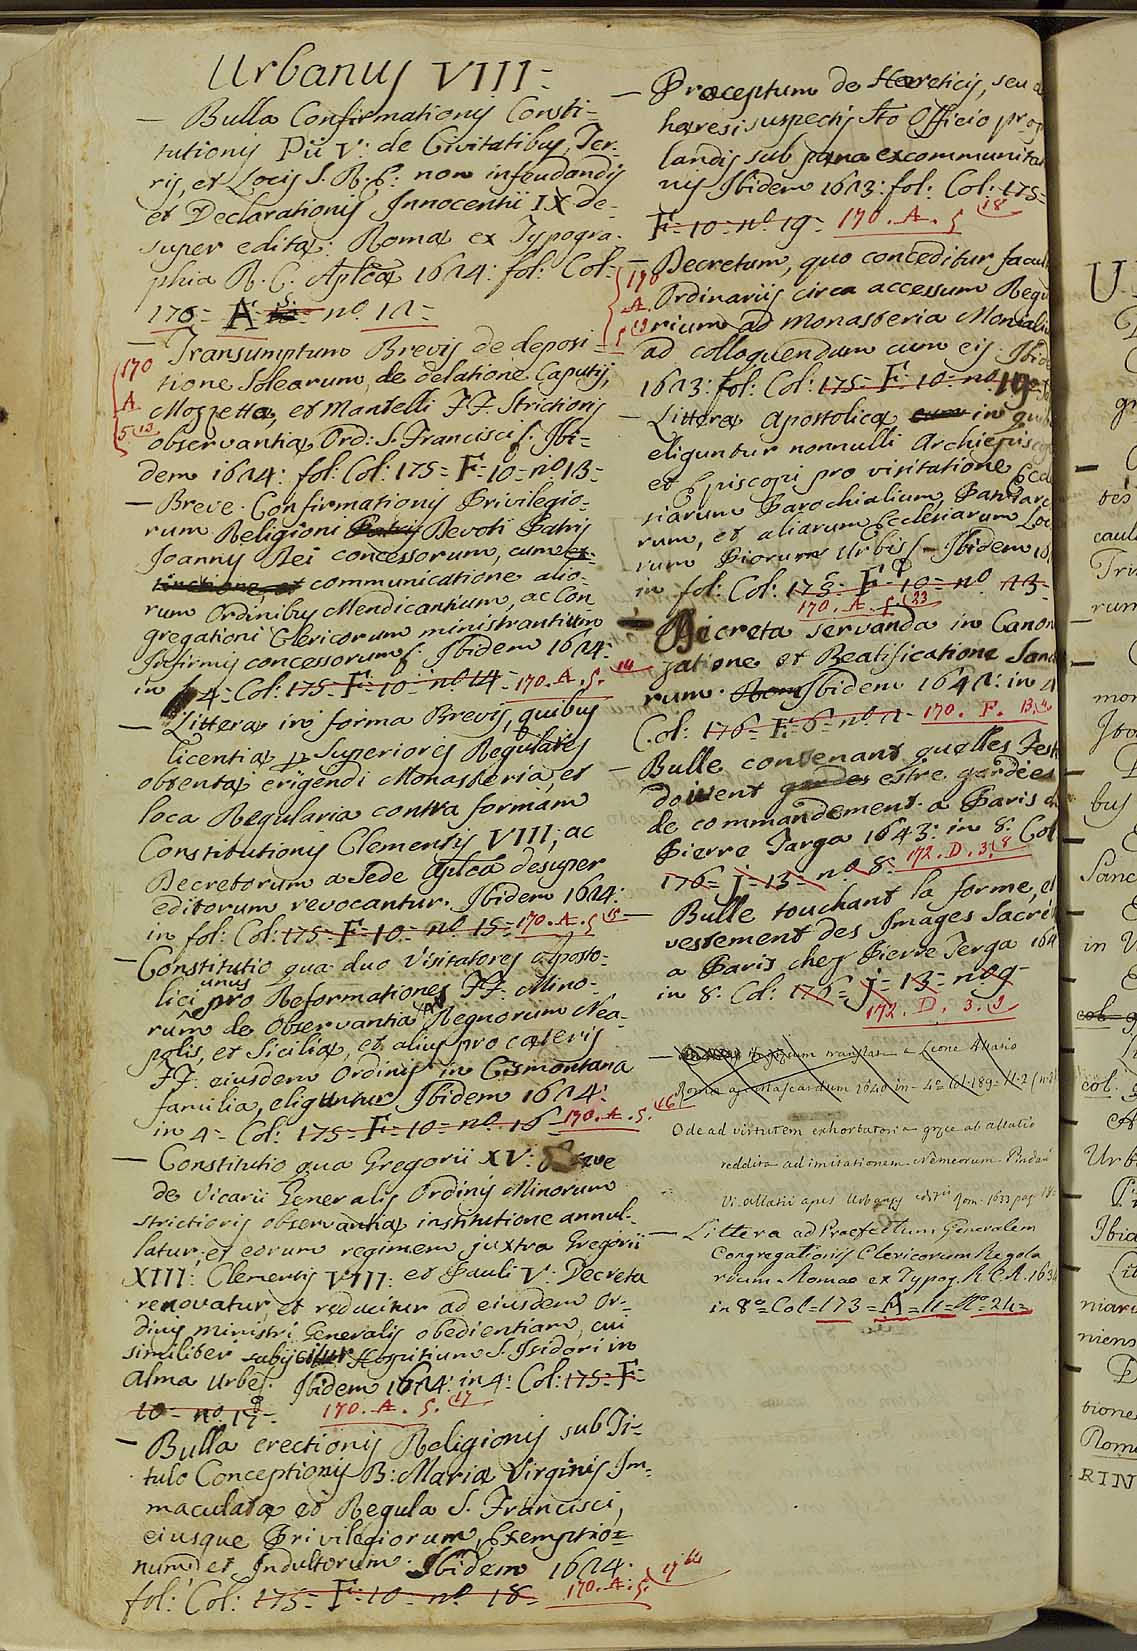 Urbanus VIII=
— Bulla Confirmationis Consti-
tutionis Pii V: de Civitatibus, Ter-
ris, et Locis S. R. E: non infeudandis
et Declarationis Innocentii IX de-
super edita: Romæ ex Typogra-
phia R. C. Aplca 1624: fol: Col:
175= A 5. nº 12=
— Transumptum Brevis de deposi=
tione Solearum, de delatione Caputij,
Mozzettæ, et Mantelli FF. Strictioris
observantiæ Ord: S. Francisci. Ibi=
dem 1624: fol: Col: 175= F= 10= nº 13=
170
A
5 13
— Breve Confirmationis Privilegio-
rum Religioni Patris Devoti Patris
Joannis Dei concessorum, cum ex-
tinctione, et communicatione alio-
rum Ordinibus Mendicantium, ac Con
gregationi Clericorum ministrantium
Infirmis concessorum. Ibidem 1624:
in 4= Col: 175= F= 10= nº 14= 170. A. 5. 14
— Litteræ in forma Brevis, quibus
licentiæ p Superiores Regulares
obtentæ erigendi Monasteria, et
loca Regularia contra formam
Constitutionis Clementis VIII, ac
Decretorum a Sede Aplca desuper
editorum revocantur. Ibidem 1624:
in fol: Col: 175= F= 10= nº 15= 170. A. 5 15
— Constitutio qua duo Visitatores Aposto-
lici unus pro Reformatione FF. Mino-
rum de Observantia Regnorum Nea-
polis, et Siciliæ, et alius pro cæteris
FF. eiusdem Ordinis in Cismontana
familia, eliguntur Ibidem 1624:
in 4= Col: 175= F= 10= nº 16= 170. A. 5. 16
— Constitutio qua Gregorii XV: Breve
de Vicarii Generalis Ordinis Minorum
strictioris observantiæ institutione annul-
latur, et eorum regimen juxtra Gregorii
XIII: Clementis VIII: et Pauli V: Decreta
renovatur, et reducitur ad eiusdem Or-
dinis ministri Generalis obedientiam, cui
similiter subijcitur Hospitium S. Isidori in
Alma Urbe. Ibidem 1624: in 4: Col: 175= F=
10= nº 17= 170. A. 5. 17
— Bulla erectionis Religionis sub Ti=
tulo Conceptionis B: Mariæ Virginis Im=
maculatæ et Regula S. Francisci,
eiusque Privilegiorum, Exemptio=
num et Indultorum. Ibidem 1624:
fol: Col: 175= F= 10= nº 18= 170. A. 5.
— Præceptum de Hæreticis, seu
hæresi suspectis Sto Officio
landis sub pæna excommunica
nis Ibidem 1623: fol: Col: 175=
F= 10= nº 19= 170. A. 5 18
— Decretum, quo conceditur facul
Ordinariis circa accessum Regu
rium ad Monasteria Monialiu
ad colloquendum cum eis. Ibide
1623: fol: Col: 175= F= 10= nº 19=
170
A.
5 19
— Litteræ Apostolicæ cum in quib
eliguntur nonnulli Archiepisco
et Episcopi pro visitatione Eccl
siarum Parochialium, Patriarc
rum, et aliarum Ecclesiarum, Loc
rum Piorum Urbis. Ibidem
in fol: Col: 175= F= 10= nº 23=
170. A. 5. 23
— Decreta servanda in Canon
zatione et Beatificatione Sanc
rum. Rom Ibidem 1642: in 4
Col: 176= F= 6= nº 170. F. 13.
— Bulle contenant quelles Fest
doivent gardes estre gardées
de commandement. a Paris
Pierre Targa 1643: in 8: Col
176= j= 13= nº 8= 172. D. 3. 8
— Bulle touchant la forme, et
vestement des Images Sacré
a Paris chez Pierre Terga 164
in 8. Col: 176= j= 13= nº 9=
172. D. 3. 9
Leone Allatio
Ode ad virtutem exhortatoria ab Allatio
reddita ad imitationem Nemeorum
Vi. Allatii apes Urbanas
— Littera ad Praefectum Generalem
Congregationis Clericorum Regola
rium. Romae ex Typog. R.C.A. 163
in 8º= Col= 173= A= 11= Nº= 24=